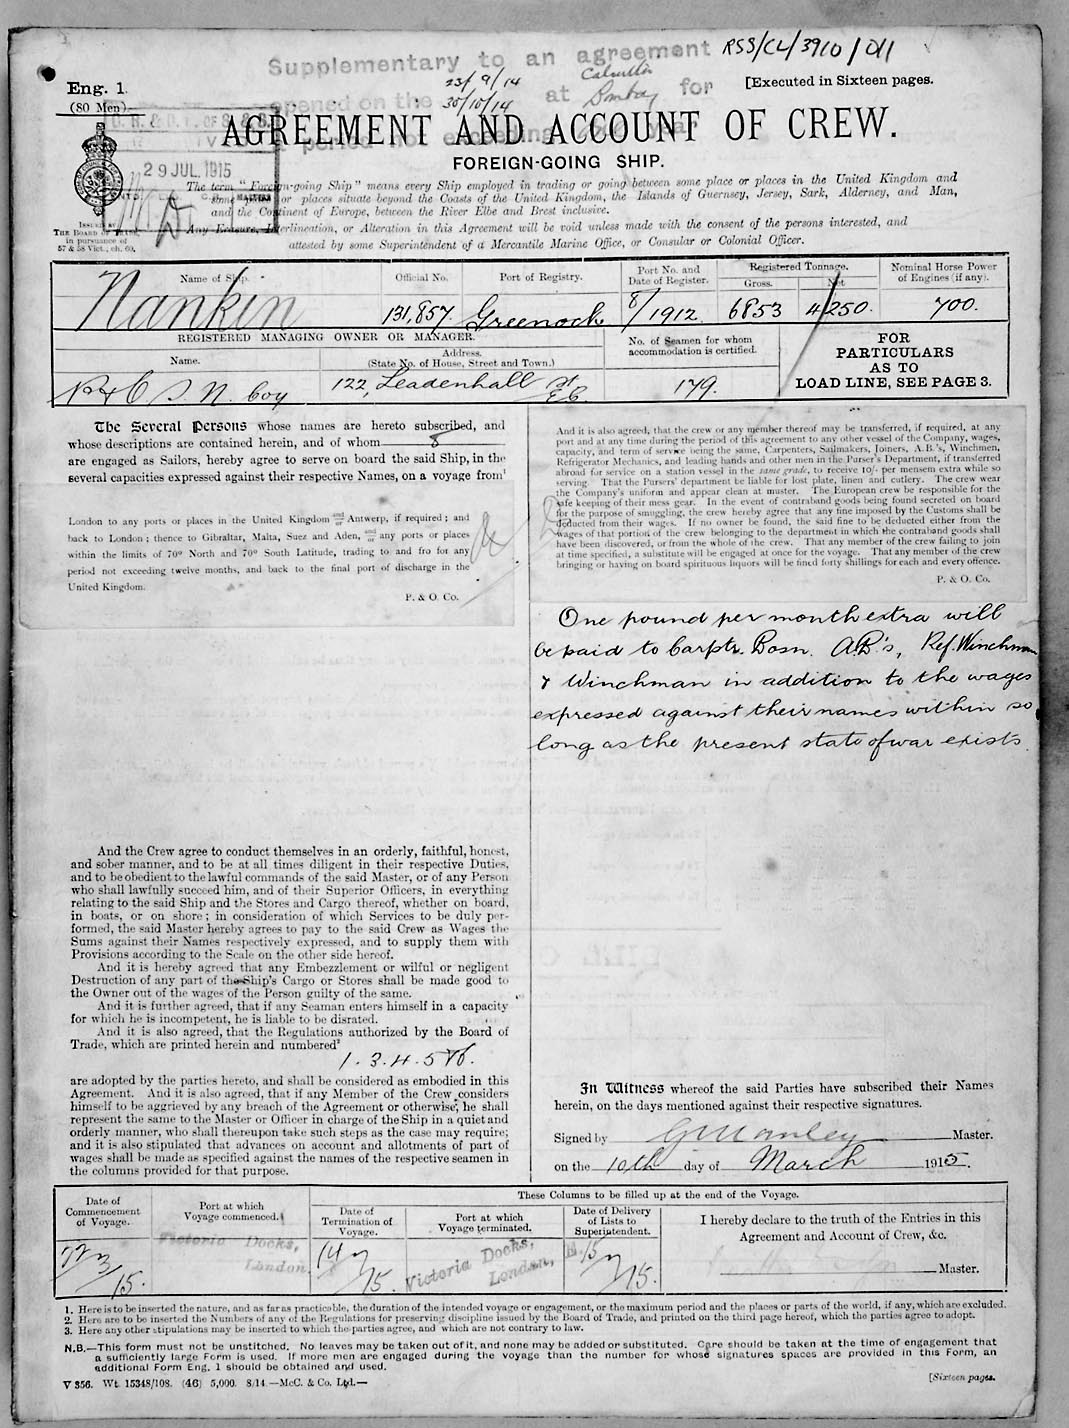 Supplementary to an agreement
RSS/CL/3910/011
23/9/14 Calcutta
opened on the 30/10/14 at Bombay for
a period not exceeding year
Eng. 1.
(80 Men)
[Executed in Sixteen pages.
AGREEMENT AND ACCOUNT OF CREW.
FOREIGN-GOING SHIP.
29 JUL 1915
The term "Foreign-going Ship" means every Ship employed in trading or going between some place or places in the United Kingdom and
some or places situate beyond the Coasts of the United Kingdom, the Islands of Guernsey, Jersey, Sark, Alderney, and Man,
and the Continent of Europe, between the River Elbe and Brest inclusive.
Any Erasure, Interlineation, or Alteration in this Agreement will be void unless made with the consent of the persons interested, and
attested by some Superintendent of a Mercantile Marine Office, or Consular or Colonial Officer.
Issued by
The Board of Trade
in pursuance of
57 & 58 Vict., ch. 60.
Name of Ship.
Official No.
Port of Registry.
Port No. and
Date of Register.
Registered Tonnage.
Gross. Net
Nominal Horse Power
of Engines (if any).
Nankin 131,857. Greenock 8/1912. 6853 4250. 700.
REGISTERED MANAGING OWNER OR MANAGER.
Name.
Address.
(State No. of House, Street and Town.)
No. of Seamen for whom
accommodation is certified.
FOR
PARTICULARS
AS TO
LOAD LINE, SEE PAGE 3.
P & O S. N. Coy 122, Leadenhall St E.C. 179.
The Several Persons whose names are hereto subscribed, and
whose descriptions are contained herein, and of whom 8
are engaged as Sailors, hereby agree to serve on board the said Ship, in the
several capacities expressed against their respective Names, on a voyage from¹
London to any ports or places in the United Kingdom and/or Antwerp, if required; and
back to London; thence to Gibraltar, Malta, Suez and Aden, and/or any ports or places
within the limits of 70° North and 70° South Latitude, trading to and fro for any
period not exceeding twelve months, and back to the final port of discharge in the
United Kingdom.
P. & O. Co.
And the Crew agree to conduct themselves in an orderly, faithful, honest,
and sober manner, and to be at all times diligent in their respective Duties,
and to be obedient to the lawful commands of the said Master, or of any Person
who shall lawfully succeed him, and of their Superior Officers, in everything
relating to the said Ship and the Stores and Cargo thereof, whether on board,
in boats, or on shore; in consideration of which Services to be duly per-
formed, the said Master hereby agrees to pay to the said Crew as Wages the
Sums against their Names respectively expressed, and to supply them with
Provisions according to the Scale on the other side hereof.
And it is hereby agreed that any Embezzlement or wilful or negligent
Destruction of any part of the Ship's Cargo or Stores shall be made good to
the Owner out of the wages of the Person guilty of the same.
And it is further agreed, that if any Seaman enters himself in a capacity
for which he is incompetent, he is liable to be disrated.
And it is also agreed, that the Regulations authorized by the Board of
Trade, which are printed herein and numbered²
1. 3. 4. 5 & 6.
are adopted by the parties hereto, and shall be considered as embodied in this
Agreement. And it is also agreed, that if any Member of the Crew considers
himself to be aggrieved by any breach of the Agreement or otherwise, he shall
represent the same to the Master or Officer in charge of the Ship in a quiet and
orderly manner, who shall thereupon take such steps as the case may require;
and it is also stipulated that advances on account and allotments of part of
wages shall be made as specified against the names of the respective seamen in
the columns provided for that purpose.
And it is also agreed, that the crew or any member thereof may be transferred, if required, at any
port and at any time during the period of this agreement to any other vessel of the Company, wages,
capacity, and term of service being the same, Carpenters, Sailmakers, Joiners, A.B.'s, Winchmen,
Refrigerator Mechanics, and leading hands and other men in the Purser's Department, if transferred
abroad for service on a station vessel in the same grade, to receive 10/- per mensem extra while so
serving. That the Pursers' department be liable for lost plate, linen and cutlery. The crew wear
the Company's uniform and appear clean at muster. The European crew be responsible for the
safe keeping of their mess gear. In the event of contraband goods being found secreted on board
for the purpose of smuggling, the crew hereby agree that any fine imposed by the Customs shall be
deducted from their wages. If no owner be found, the said fine to be deducted either from the
wages of that portion of the crew belonging to the department in which the contraband goods shall
have been discovered, or from the whole of the crew. That any member of the crew failing to join
at time specified, a substitute will be engaged at once for the voyage. That any member of the crew
bringing or having on board spirituous liquors will be fined forty shillings for each and every offence.
P. & O. Co.
One pound per month extra will
be paid to Carptr. Bosn. A.B.'s, Ref. Winchman
& Winchman in addition to the wages
expressed against their names within so
long as the present state of war exists.
In Witness whereof the said Parties have subscribed their Names
herein, on the days mentioned against their respective signatures.
Signed by G Manley Master.
on the 10th day of March 1915.
Date of
Commencement
of Voyage.
Port at which
Voyage commenced.
These Columns to be filled up at the end of the Voyage.
Date of
Termination of
Voyage.
Port at which
Voyage terminated.
Date of Delivery
of Lists to
Superintendent.
I hereby declare to the truth of the Entries in this
Agreement and Account of Crew, &c.
Master.
12/3/15. Victoria Docks, London. 14/7/15. Victoria Docks, London, E. 15/7/15.
1. Here is to be inserted the nature, and as far as practicable, the duration of the intended voyage or engagement, or the maximum period and the places or parts of the world, if any, which are excluded.
2. Here are to be inserted the Numbers of any of the Regulations for preserving discipline issued by the Board of Trade, and printed on the third page hereof, which the parties agree to adopt.
3. Here any other stipulations may be inserted to which the parties agree, and which are not contrary to law.
N.B.—This form must not be unstitched. No leaves may be taken out of it, and none may be added or substituted. Care should be taken at the time of engagement that
a sufficiently large Form is used. If more men are engaged during the voyage than the number for whose signatures spaces are provided in this Form, an
additional Form Eng. 1 should be obtained and used.
V 356. Wt. 15348/108. (46) 5,000. 8/14.—McC. & Co. Ltd.—
[Sixteen pages.